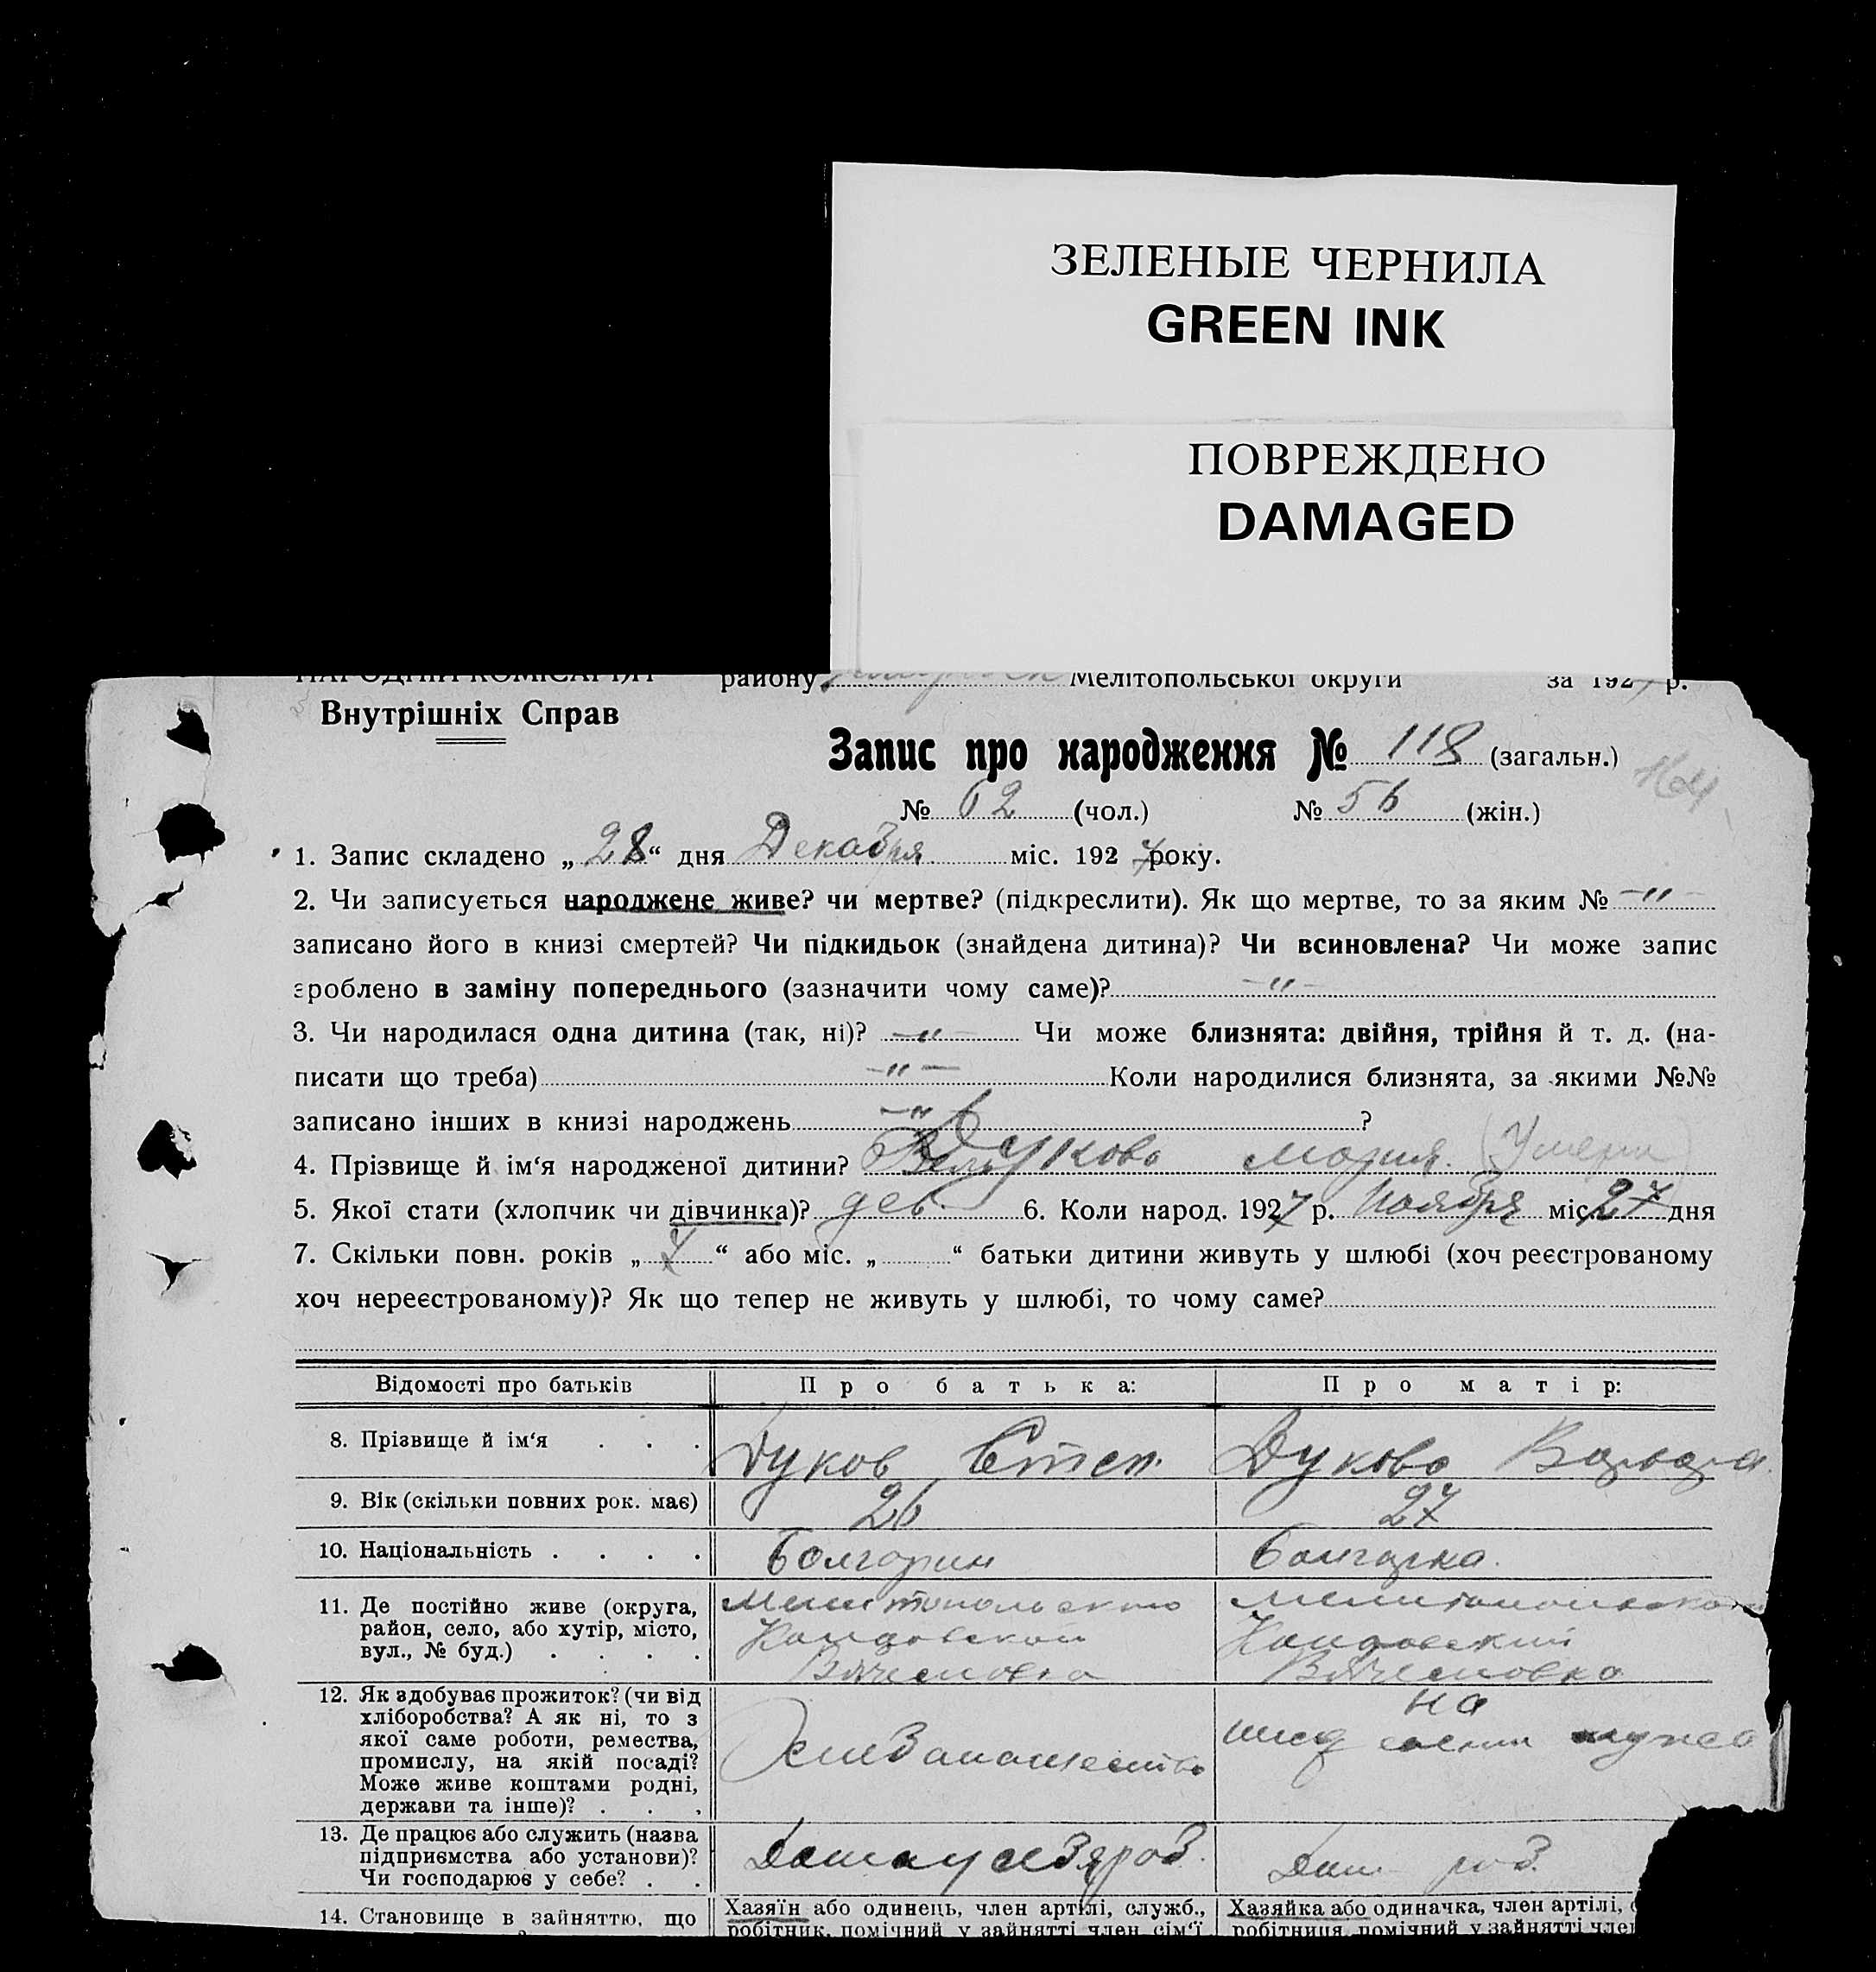 ЗЕЛЕНЫЕ ЧЕРНИЛА
GREEN INK
ПОВРЕЖДЕНО
DAMAGED
НАРОДНІЙ КОМІСАРІЯТ району Мелітопольської округи за 1927 р.
Внутрішніх Справ
Запис про народження № 118 (загальн.)
164
№ 62 (чол.) № 56 (жін.)
1. Запис складено „28“ дня Декабря міс. 1927 року.
2. Чи записується народжене живе? чи мертве? (підкреслити). Як що мертве, то за яким № -"-
записано його в книзі смертей? Чи підкидьок (знайдена дитина)? Чи всиновлена? Чи може запис
зроблено в заміну попереднього (зазначити чому саме)? -"-
3. Чи народилася одна дитина (так, ні)? -"- Чи може близнята: двійня, трійня й т. д. (на-
писати що треба) -"- Коли народилися близнята, за якими №№
записано інших в книзі народжень -"- ?
4. Прізвище й ім‘я народженої дитини? Дукова Мария (Умерл
5. Якої стати (хлопчик чи дівчинка)? дев. 6. Коли народ. 1927 р. Ноября міс. 27 дня
7. Скільки повн. років „ “ або міс. „ “ батьки дитини живуть у шлюбі (хоч реєстрованому
хоч нереєстрованому)? Як що тепер не живуть у шлюбі, то чому саме?
Відомості про батьків Про батька: Про матір:
8. Прізвище й ім‘я . . . Дуков Степ. Дукова
9. Вік (скільки повних рок. має) 26 27
10. Національність . . . . Болгарин Болгарка.
11. Де постійно живе (округа,
район, село, або хутір, місто,
вул., № буд.) . . . .
Мелитопольско
Вячеславка
Вячеславка
12. Як здобуває прожиток? (чи від
хліборобства? А як ні, то з
якої саме роботи, ремества,
промислу, на якій посаді?
Може живе коштами родні,
держави та інше)? . . .
на
мужа
13. Де працює або служить (назва
підприємства або установи)?
Чи господарює у себе? . .
14. Становище в зайняттю, що
Хазяїн або одинець, член артілі, служб.,
робітник, помічний у зайнятті член сім‘ї
Хазяйка або одиначка, член артілі,
робітниця, помічний у зайнятті член